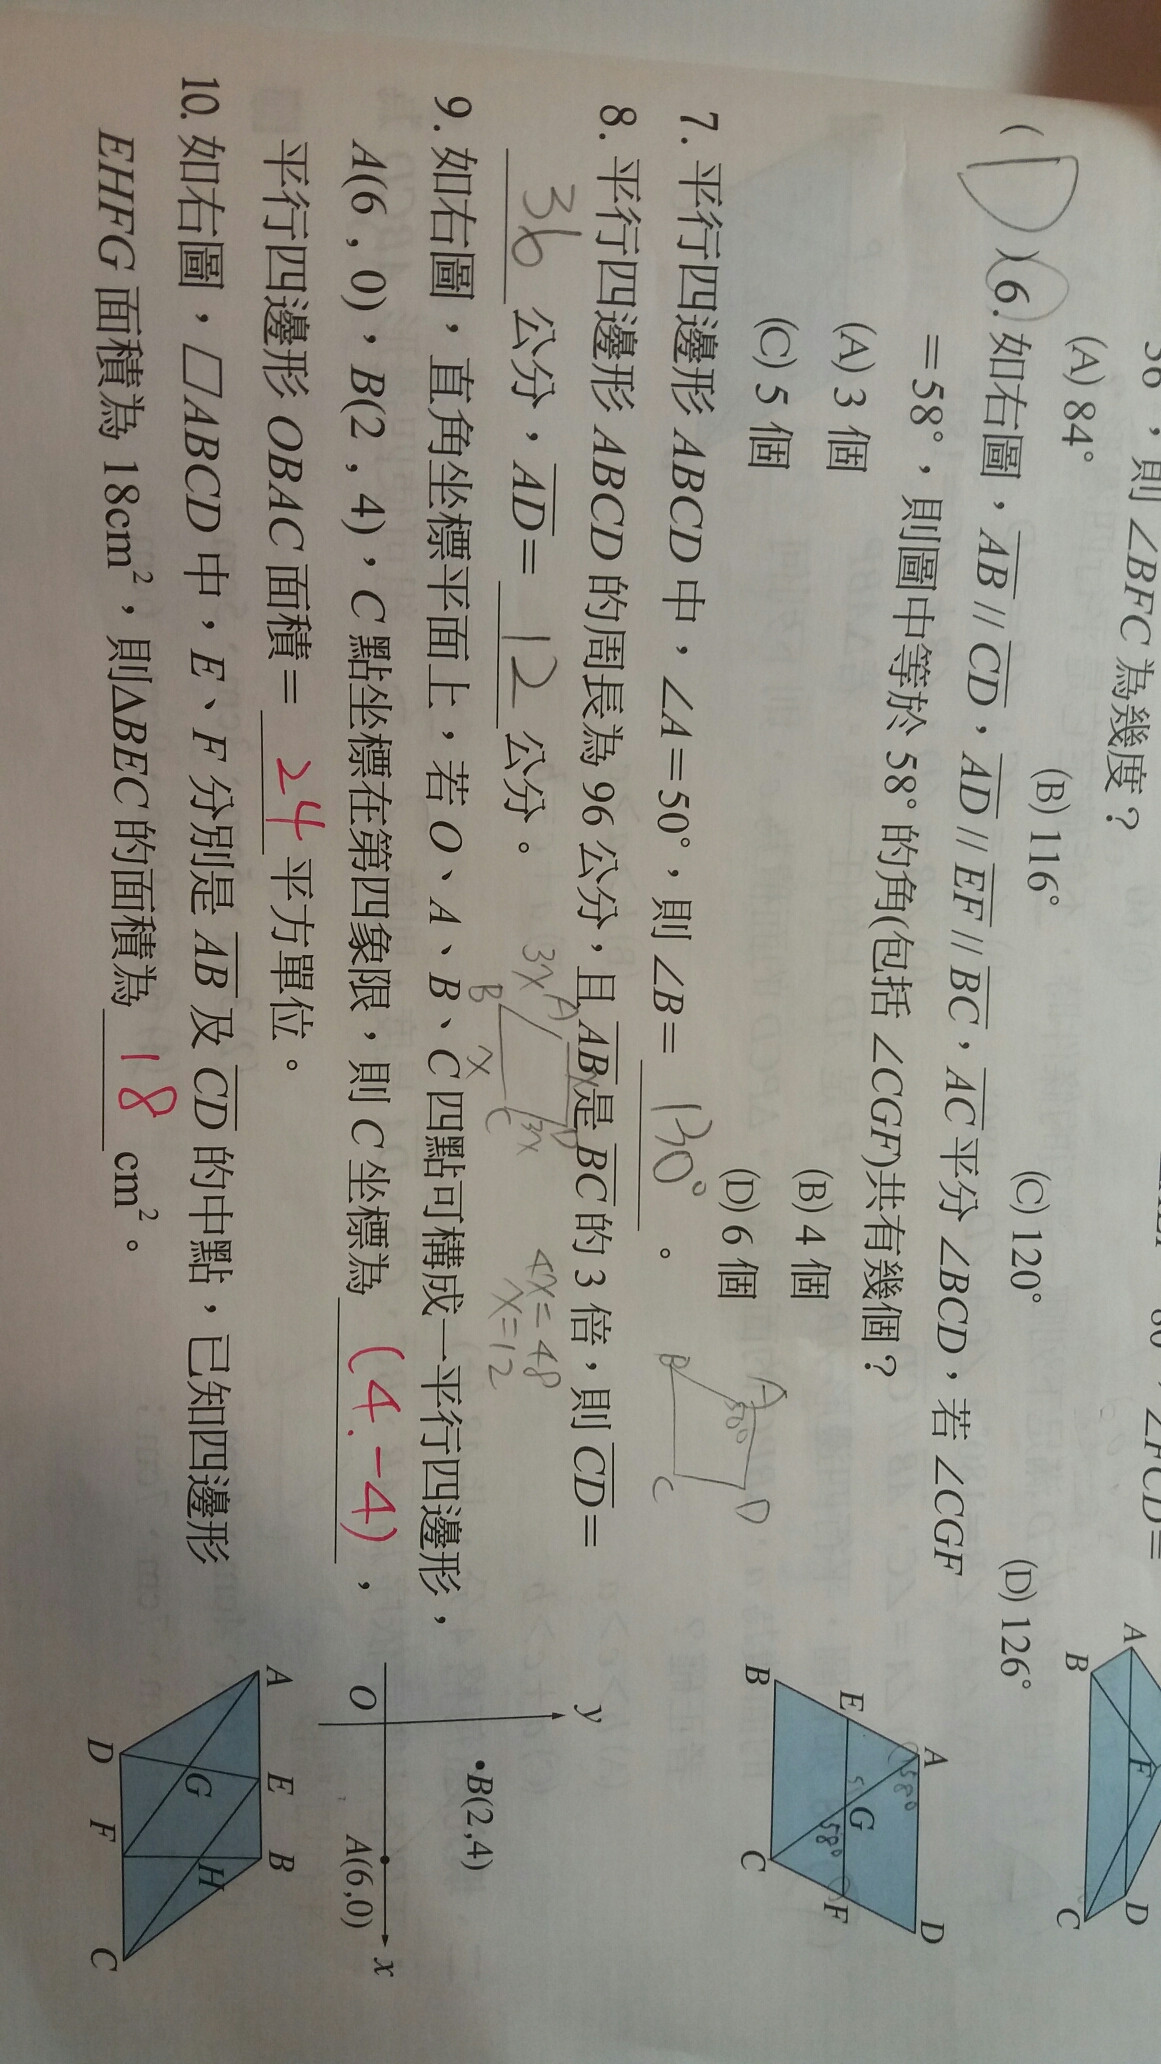 ，則 ∠BFC 為幾度？
(A) 84° (B) 116° (C) 120° (D) 126°
( D ) 6. 如右圖，AB // CD，AD // EF // BC，AC 平分 ∠BCD，若 ∠CGF
＝58°，則圖中等於 58° 的角(包括 ∠CGF)共有幾個？
(A) 3 個 (B) 4 個
(C) 5 個 (D) 6 個
A D E G F B C
58° 58°
7. 平行四邊形 ABCD 中，∠A＝50°，則 ∠B＝ 130° 。
A 50° D B C
8. 平行四邊形 ABCD 的周長為 96 公分，且 AB 是 BC 的 3 倍，則 CD＝
36 公分，AD＝ 12 公分。
3x A D B x C 3x
4x=48
x=12
9. 如右圖，直角坐標平面上，若 O、A、B、C 四點可構成一平行四邊形，
A(6 , 0)，B(2 , 4)，C 點坐標在第四象限，則 C 坐標為 (4.-4) ，
平行四邊形 OBAC 面積＝ 24 平方單位。
y
B(2,4)
O A(6,0) x
10. 如右圖，▱ABCD 中，E、F 分別是 AB 及 CD 的中點，已知四邊形
EHFG 面積為 18cm²，則△BEC 的面積為 18 cm²。
A E B
G H
D F C
A F D
B C